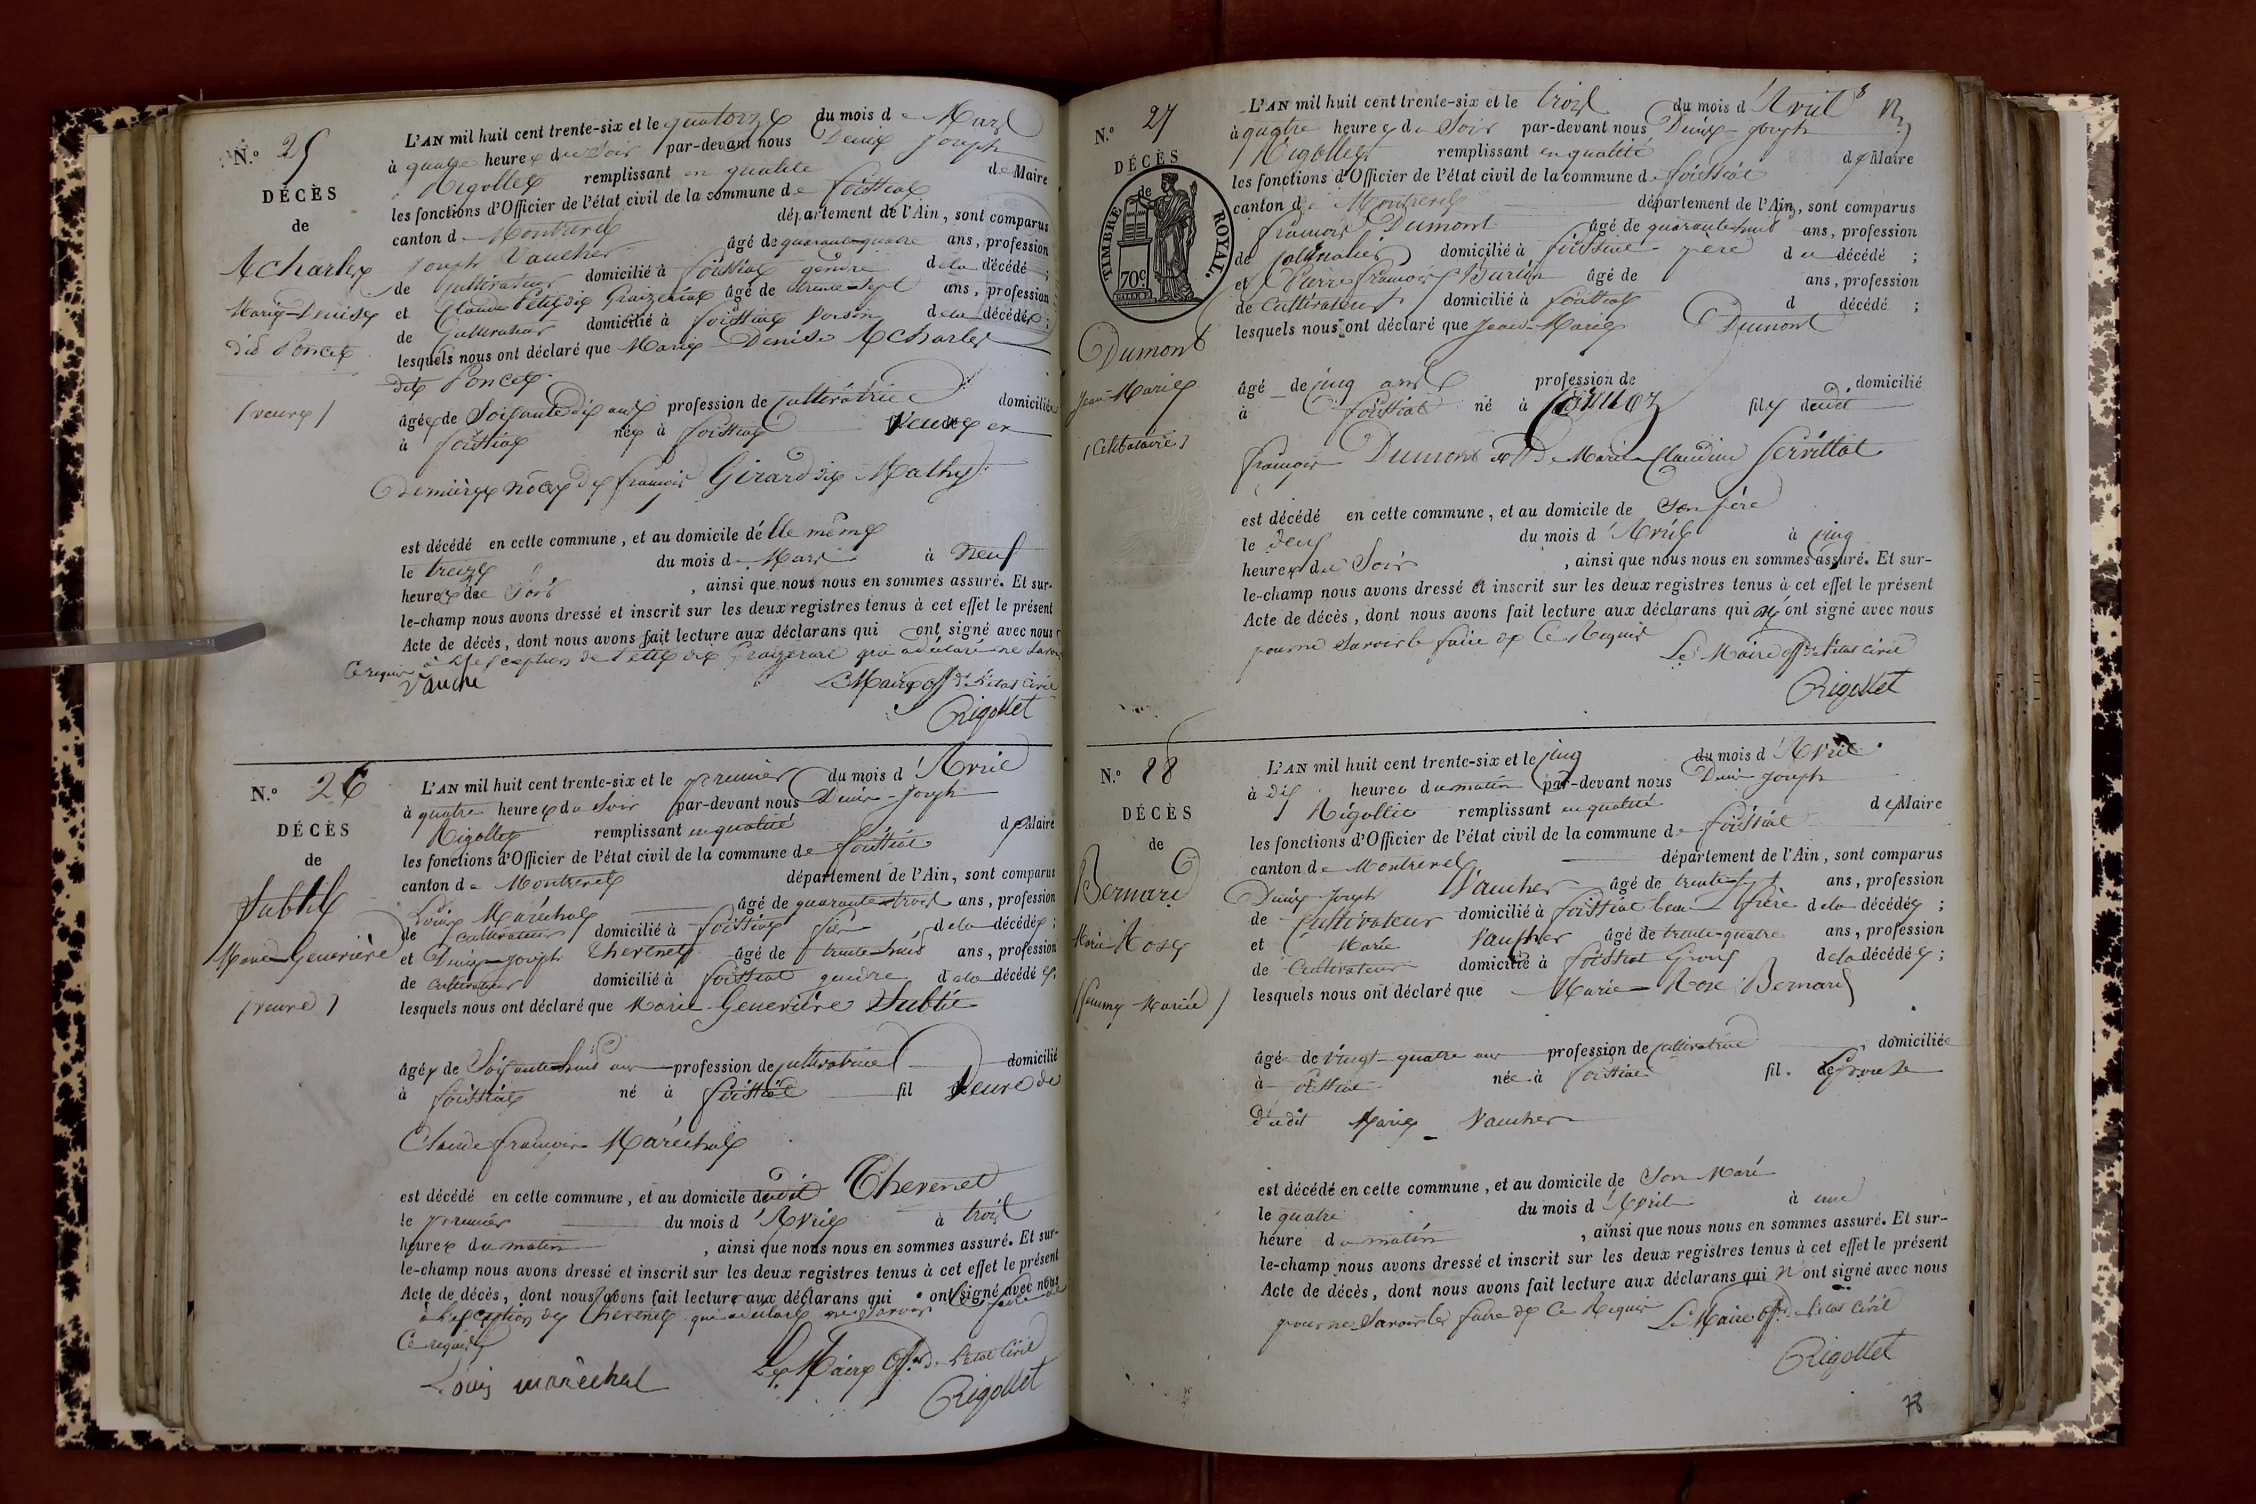 N.º 25
DÉCÈS
de
Acharlex
Marie-Denise
dit Poncet
(veuve)
L'AN mil huit cent trente-six et le quatorze du mois de Mars
à quatre heures du Soir par-devant nous Denis Joseph
Rigollet remplissant en qualité de Maire
les fonctions d'Officier de l'état civil de la commune de foissiat
canton de Montrevel département de l'Ain, sont comparus
Joseph Vaucher âgé de quarante-quatre ans, profession
de Cultivateur domicilié à foissiat gendre de la décédé ;
et Claude Petit dit âgé de trente-sept ans, profession
de Cultivateur domicilié à foissiat voisin de la décédée ;
lesquels nous ont déclaré que Marie Denise Acharlex
dit Poncet
âgée de Soixante dix ans profession de Cultivatrice domiciliée
à foissiat née à foissiat Veuve en
dernière nôces de françois Girard dit Mathy
est décédé en cette commune, et au domicile d'elle même
le treize du mois de Mars à neuf
heures du Soir, ainsi que nous nous en sommes assuré. Et sur-
le-champ nous avons dressé et inscrit sur les deux registres tenus à cet effet le présent
Acte de décès, dont nous avons fait lecture aux déclarans qui ont signé avec nous
à l'exception de Petit dit qui a déclaré ne Savoir
Ce requis
Vauché
Le Maire off. de l'état Civil
Rigollet
N.º 26
DÉCÈS
de
Subtil
Marie-Geneviève
(veuve)
L'AN mil huit cent trente-six et le premier du mois d'Avril
à quatre heures du Soir par-devant nous Denis-Joseph
Rigollet remplissant en qualité de Maire
les fonctions d'Officier de l'état civil de la commune de foissiat
canton de Montrevel département de l'Ain, sont comparus
Louis Maréchal âgé de quarante-trois ans, profession
de Cultivateur domicilié à foissiat fils de la décédée ;
et Denis-Joseph Thevenet âgé de trente-huit ans, profession
de Cultivateur domicilié à foissiat gendre de la décédée ;
lesquels nous ont déclaré que Marie-Geneviève Subtil
âgée de Soixante-huit ans profession de Cultivatrice domicilié
à foissiat né à foissiat fil Veuve de
Claude françois Maréchal
est décédé en cette commune, et au domicile dudit Thevenet
le premier du mois d'Avril à trois
heures du matin, ainsi que nous nous en sommes assuré. Et sur-
le-champ nous avons dressé et inscrit sur les deux registres tenus à cet effet le présent
Acte de décès, dont nous avons fait lecture aux déclarans qui ont signé avec nous
à l'exception de Thevenet qui a déclaré ne Savoir le faire de
Ce requis
Louis maréchal
Le Maire Off. de l'état Civil
Rigollet
N.º 27
DÉCÈS
de
TIMBRE ROYAL.
70c
Dumont
Jean-Marie
(Célibataire)
L'AN mil huit cent trente-six et le trois du mois d'Avril
à quatre heures du Soir par-devant nous Denis-Joseph
Rigollet remplissant en qualité de Maire
les fonctions d'Officier de l'état civil de la commune de foissiat
canton de Montrevel département de l'Ain, sont comparus
françois Dumont âgé de quarante-huit ans, profession
de journalier domicilié à foissiat père du décédé ;
et Pierre françois Burtin âgé de ans, profession
de Cultivateur domicilié à foissiat d décédé ;
lesquels nous ont déclaré que Jean-Marie Dumont
âgé de cinq ans profession de domicilié
à foissiat né à fils dudit
françois Dumont et de Marie Claudine Servillat
est décédé en cette commune, et au domicile de Son père
le deux du mois d'Avril à cinq
heures du Soir, ainsi que nous nous en sommes assuré. Et sur-
le-champ nous avons dressé et inscrit sur les deux registres tenus à cet effet le présent
Acte de décès, dont nous avons fait lecture aux déclarans qui n'ont signé avec nous
pour ne Savoir le faire de Ce Requis
Le Maire off. de l'état Civil
Rigollet
N.º 28
DÉCÈS
de
Bernard
Marie-Rose
(femme Mariée)
L'AN mil huit cent trente-six et le cinq du mois d'Avril
à dix heures du matin par-devant nous Denis Joseph
Rigollet remplissant en qualité de Maire
les fonctions d'Officier de l'état civil de la commune de foissiat
canton de Montrevel département de l'Ain, sont comparus
Denis-Joseph Vaucher âgé de trente-sept ans, profession
de Cultivateur domicilié à foissiat beau frère de la décédée ;
et Marie Vaucher âgé de trente-quatre ans, profession
de Cultivateur domicilié à foissiat Époux de la décédée ;
lesquels nous ont déclaré que Marie-Rose Bernard
âgée de vingt-quatre ans profession de Cultivatrice domiciliée
à foissiat née à foissiat fil. Épouse
dudit Marie Vaucher
est décédé en cette commune, et au domicile de Son Mari
le quatre du mois d'Avril à une
heure du matin, ainsi que nous nous en sommes assuré. Et sur-
le-champ nous avons dressé et inscrit sur les deux registres tenus à cet effet le présent
Acte de décès, dont nous avons fait lecture aux déclarans qui n'ont signé avec nous
pour ne Savoir le faire de Ce Requis Le Maire off. de l'état Civil
Rigollet
78